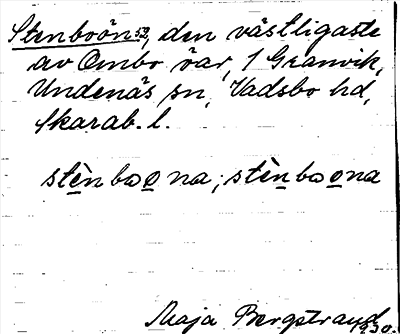 Stenboön 53, den västligaste
av Ombo öar, 1 Granvik,
Undenäs sn, Vadsbo hd,
Skarab. l.
stènbo o na; stènbo o na
Maja Bergstrand
1930.